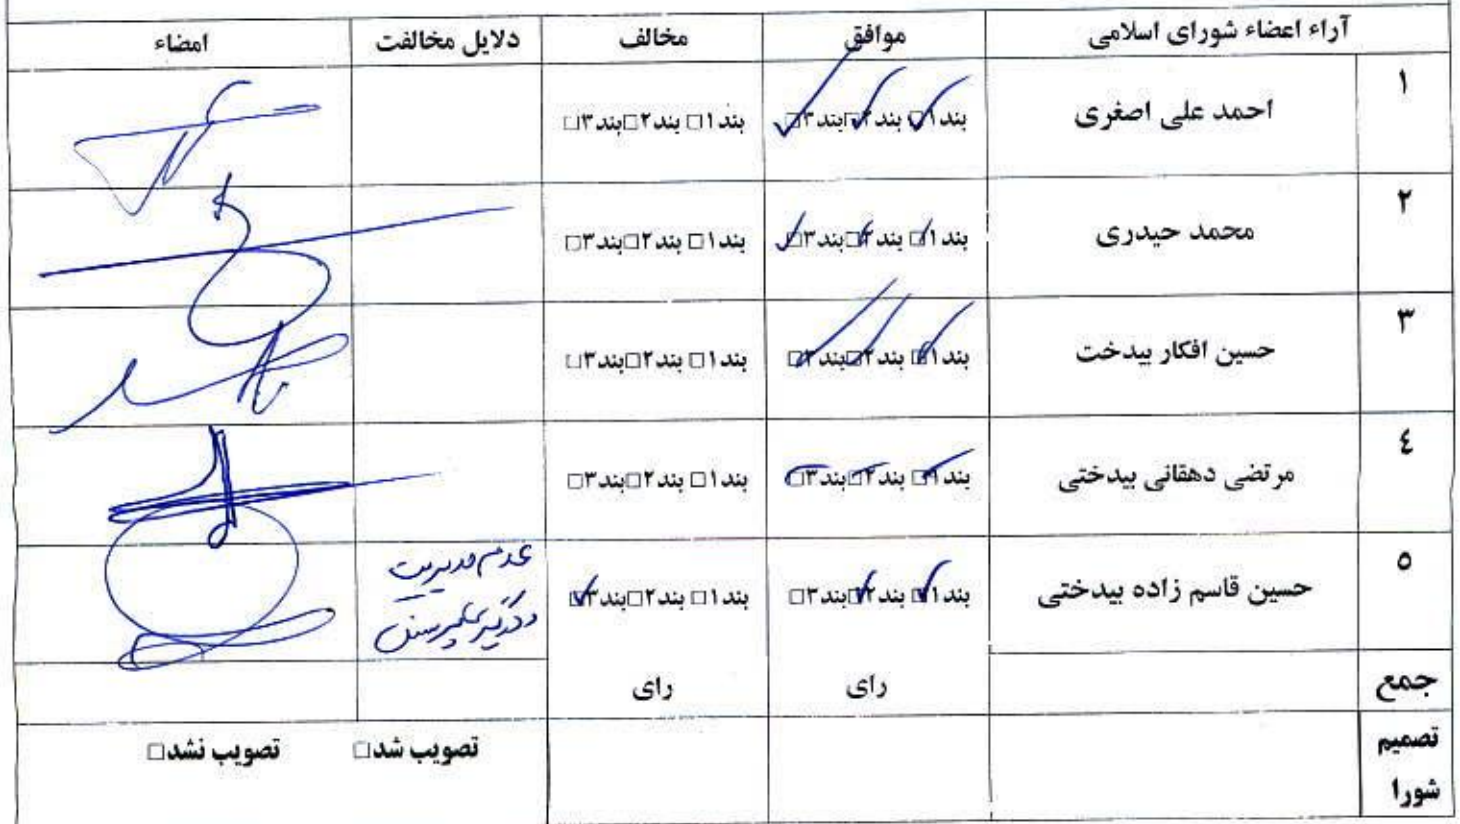 آراء اعضاء شورای اسلامی موافق مخالف دلایل مخالفت امضاء
۱ احمد علی اصغری بند۱□ بند۲□بند۳□ بند۱□ بند۲□بند۳□
۲ محمد حیدری بند۱□ بند۲□بند۳□ بند۱□ بند۲□بند۳□
۳ حسین افکار بیدخت بند۱□ بند۲□بند۳□ بند۱□ بند۲□بند۳□
٤ مرتضی دهقانی بیدختی بند۱□ بند۲□بند۳□ بند۱□ بند۲□بند۳□
۵ حسین قاسم زاده بیدختی بند۱□ بند۲□بند۳□ بند۱□ بند۲□بند۳□ عدم مدیریت
جمع رای رای
تصمیم تصویب شد□ تصویب نشد□
شورا